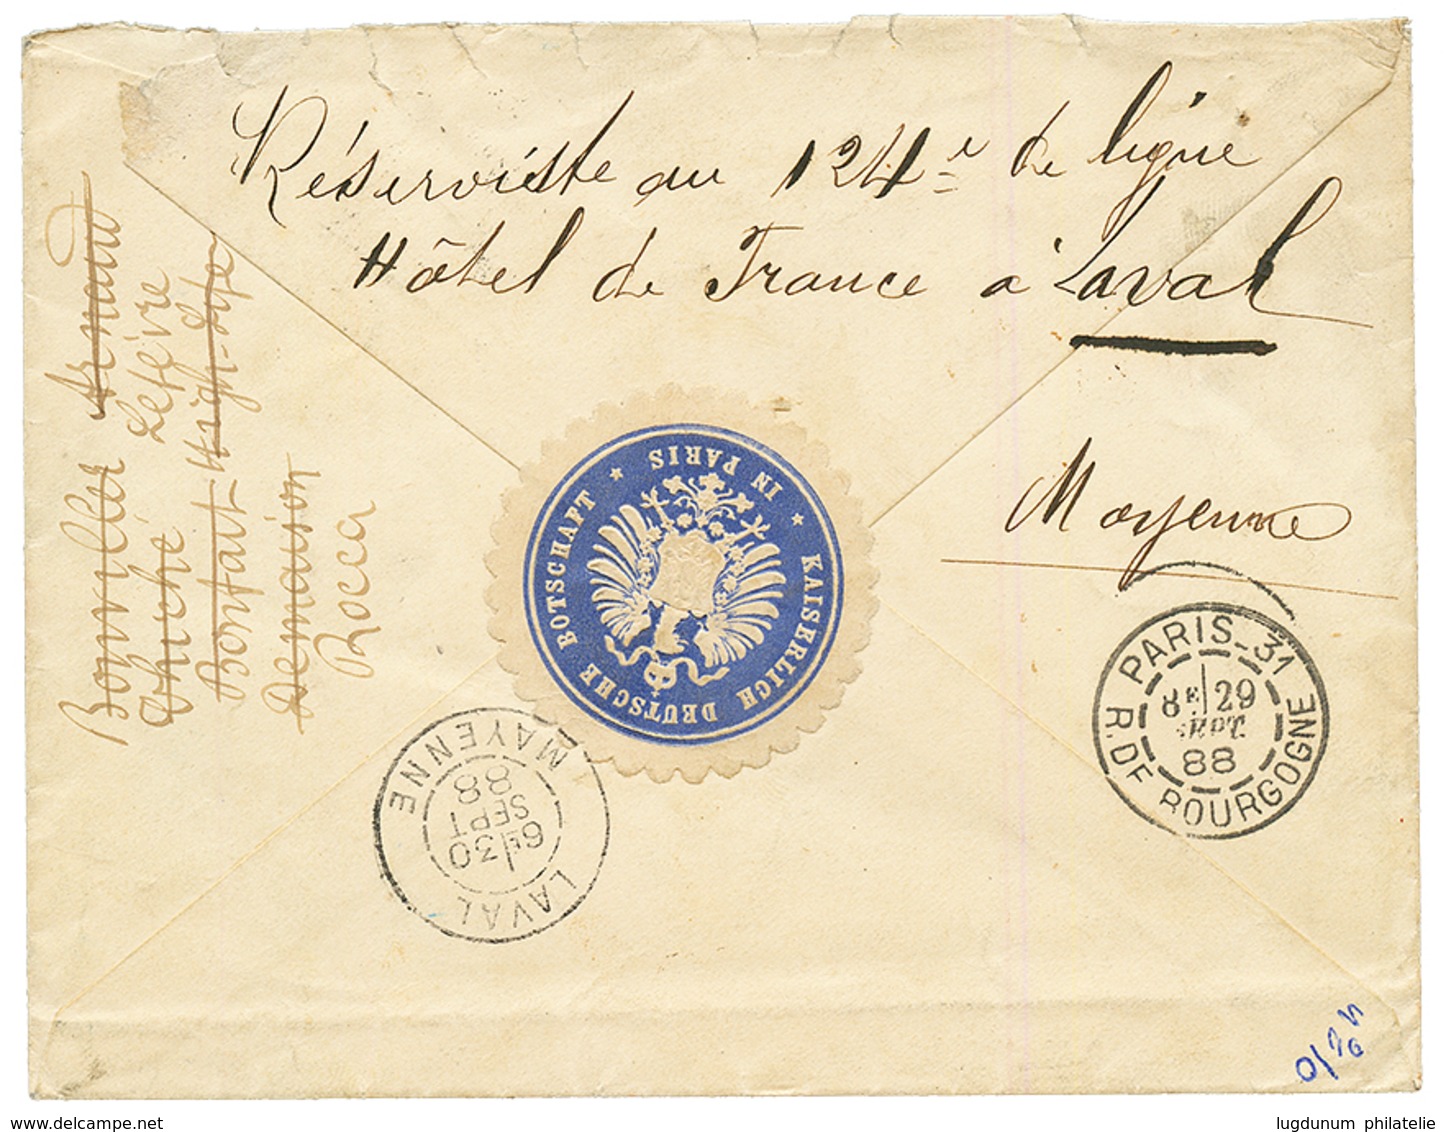 Réserviste au 124e de ligne
Hôtel de France à Laval
Mayenne
Arnaud
Lefèvre
Bonfait
Demaison
Rocca
KAISERLICH DEUTSCHE BOTSCHAFT
* IN PARIS *
PARIS_31
8E 29
SEPT.
88
R. DE BOURGOGNE
LAVAL
6E 30
SEPT
88
MAYENNE
www.delcampe.net
lugdunum philatelie